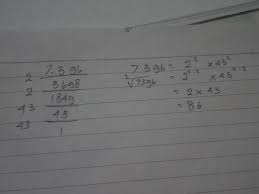 2 7.396
2 3698
43 1849
43 43
1
7396 = 2² × 43²
²√7396 = 2^2:2 × 43^2:2
= 2 × 43
= 86